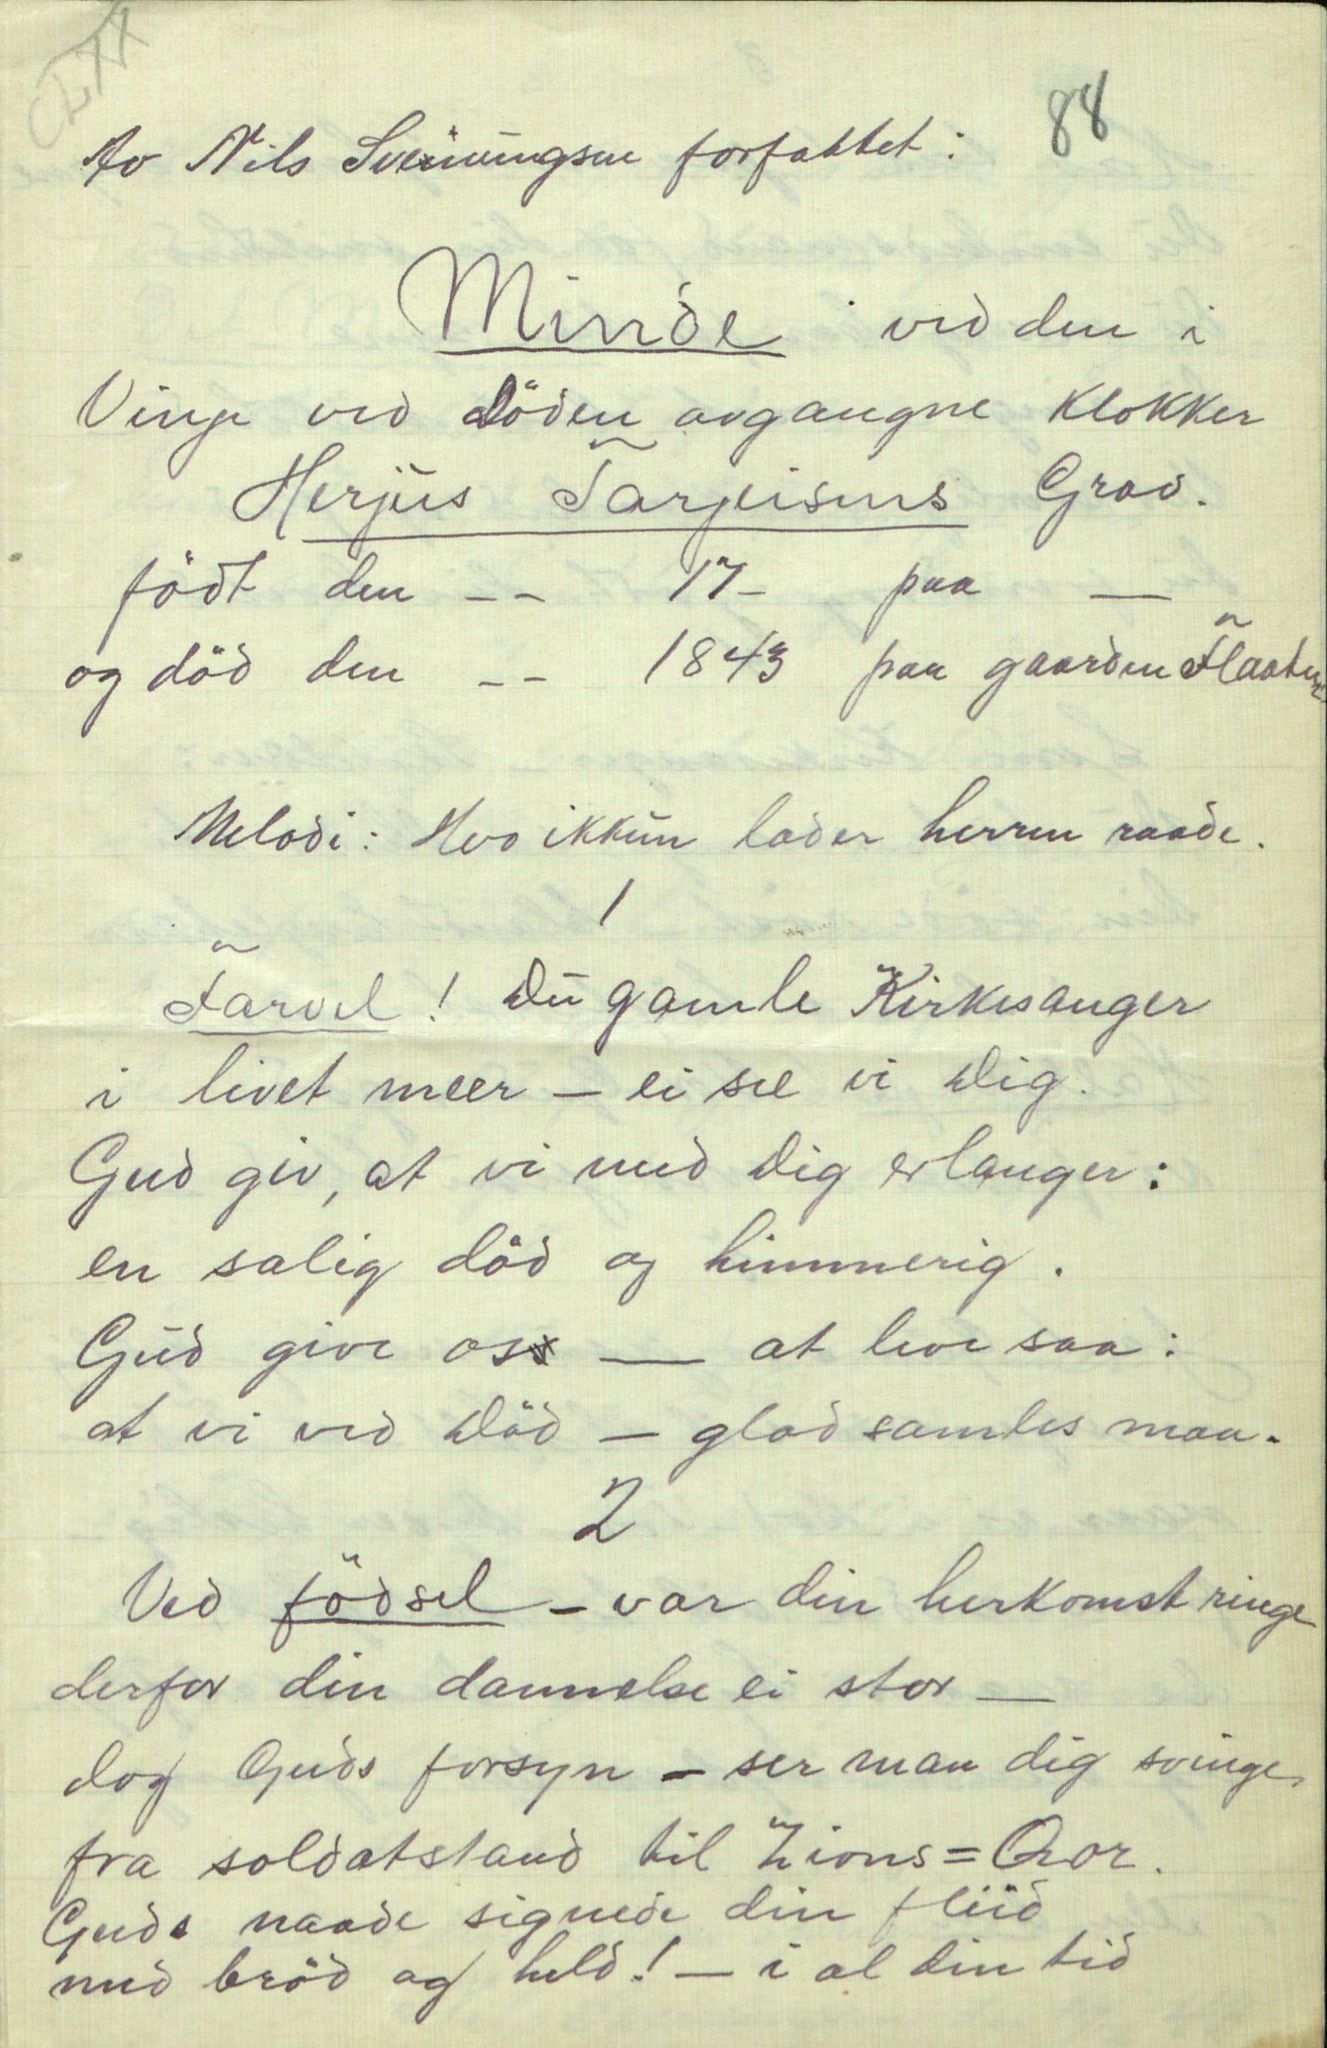 88
Av Nils Sveinungsen forfattet:
Minde ved den i
Vinje ved Döden avgangne Klokker
Herjus Tarjeisens Grav.
födt den -- 17- paa —
og död den -- 1843 paa gaarden Flaaten
Melodi: Hvo ikkun lader herren raade.
1
Farvel! Du gamle Kirkesanger
i livet meer — ei see vi Dig.
Gud giv, at vi med Dig erlanger:
en salig död og himmerig.
Gud give oss — at leve saa:
at vi ved Död — glad samles maa.
2
Ved födsel — var din herkomst ringe
derfor din dannelse ei stor —
dog Guds forsyn — ser man dig svinge
fra soldatstand til Zions=Qor.
Guds naade signede din fliid
med bröd og held! — i al din tid